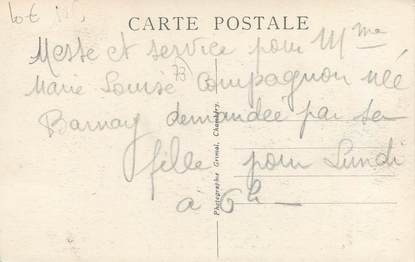 Lot
CARTE POSTALE
Messe et service pour Mme
Marie Louise Compagnon née
Barnay demandée par sa
fille pour Lundi
à 6h —
Photographie Grimal, Chambéry.